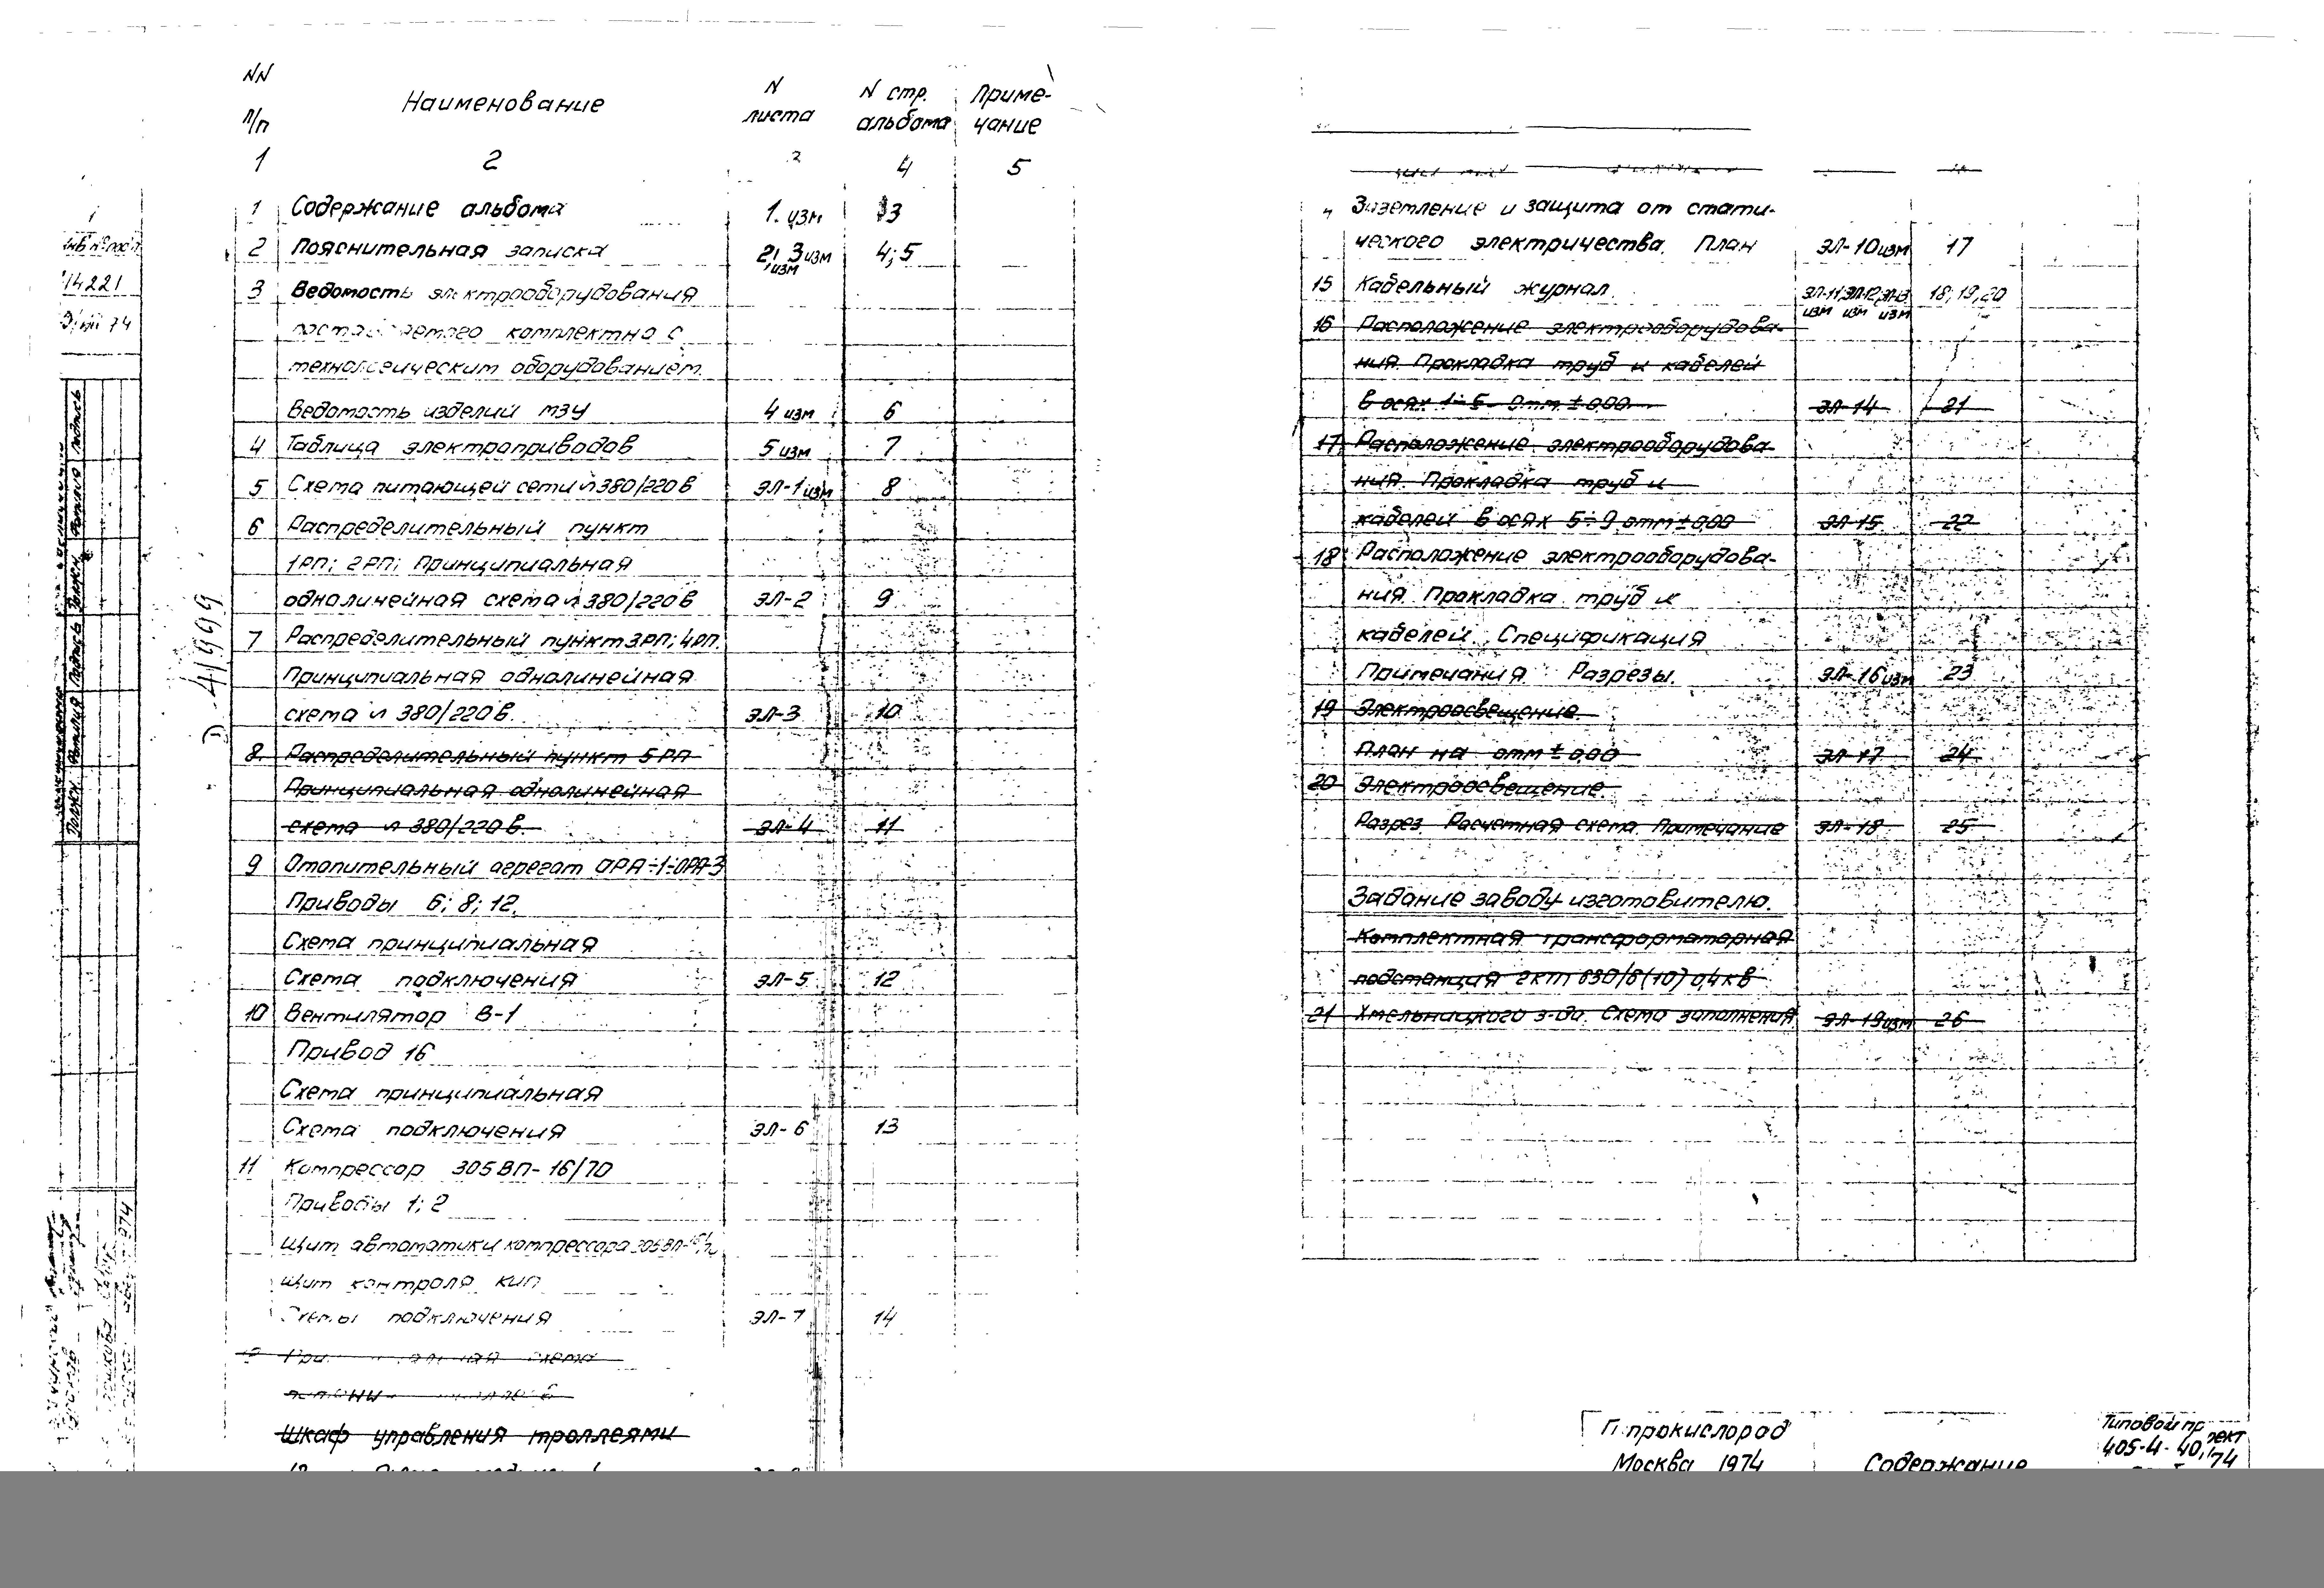 NN п/п Наименование N листа N стр. альбома Приме-чание
1 2 3 4 5
1 Содержание альбома 1. изм 3
2 Пояснительная записка 2; 3 изм 4; 5
изм
3 Ведомость электрооборудования
комплектно с
технологическим оборудованием.
Ведомость изделий МЭУ 4 изм 6
4 Таблица электроприводов 5 изм 7
5 Схема питающей сети ~380/220в ЭЛ-1 изм 8
6 Распределительный пункт
1РП; 2РП; Принципиальная
однолинейная схема ~380/220в ЭЛ-2 9
7 Распределительный пункт 3РП; 4РП.
Принципиальная однолинейная
схема ~ 380/220в. ЭЛ-3 10
8. Распределительный пункт 5РП
Принципиальная однолинейная
схема ~ 380/220в. ЭЛ-4 11
9 Отопительный агрегат ОРА-1÷ОРА-3
Приводы 6; 8; 12.
Схема принципиальная
Схема подключения ЭЛ-5 12
10 Вентилятор В-1
Привод 16
Схема принципиальная
Схема подключения ЭЛ-6 13
11 Компрессор 305ВП-16/70
Приводы 1; 2
Щит автоматики компрессора 305ВП-16/70
Щит контроля КИП
Схемы подключения ЭЛ-7 14
схема
Шкаф управления троллеями
Заземление и защита от стати-
ческого электричества. План ЭЛ-10 изм 17
15 Кабельный журнал. ЭЛ-11, ЭЛ-12, ЭЛ-13 18; 19, 20
изм изм изм
16 Расположение электрооборудова-
ния. Прокладка труб и кабелей
в осях 1÷5 отм. ±0,00 ЭЛ-14 21
17 Расположение электрооборудова-
ния. Прокладка труб и
кабелей в осях 5÷9 отм ±0,00 ЭЛ-15 22
18 Расположение электрооборудова-
ния. Прокладка труб и
кабелей. Спецификация
Примечания. Разрезы. ЭЛ-16 изм 23
19 Электроосвещение.
План на отм ± 0,00 ЭЛ-17 24
20 Электроосвещение.
Разрез. Расчетная схема. Примечание ЭЛ-18 25
Задание заводу-изготовителю.
Комплектная трансформаторная
подстанция 2КТП 630/6(10) 0,4кв
21 Хмельницкого з-да. Схема заполнения ЭЛ-19 изм 26
Гипрокислород
Москва 1974
Содержание
Типовой проект
405-4-40/74
14221
4/999
Должн. Фамилия Подпись Должн. Фамилия Подпись